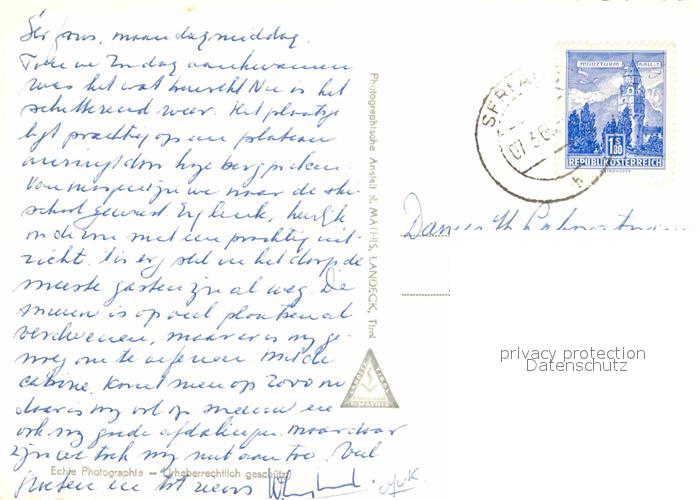 Serfaus, maandagmiddag.
Toen we Zondag aankwamen
was het wat bewolkt Nu is het
schitterend weer. Het plaatsje
ligt prachtig op een plateau
omringd door hoge bergpieken.
Van morgen zijn we naar de ski-
school geweest Erg leuk, heerlijk
in de zon met een prachtig uit-
zicht. t is erg stil in het dorp de
meeste gasten zijn al weg. De
sneeuw is op veel plaatsen al
verdwenen, maar er is nog ge-
noeg om te oefenen. Met de
cabine komt men op 2000 m
daar is nog vol op sneeuw en
ook nog goede afdalingen maar daar
zijn we toch nog niet aan toe. Veel
groeten en tot ziens
Echte Photographie — Urheberrechtlich geschützt
Photographische Anstalt R. MATHIS, LANDECK, Tirol
MÜNZTURM HALL i.T.
S 1.80
REPUBLIK ÖSTERREICH
SERFAUS
07.3.6
Dames
privacy protection
Datenschutz